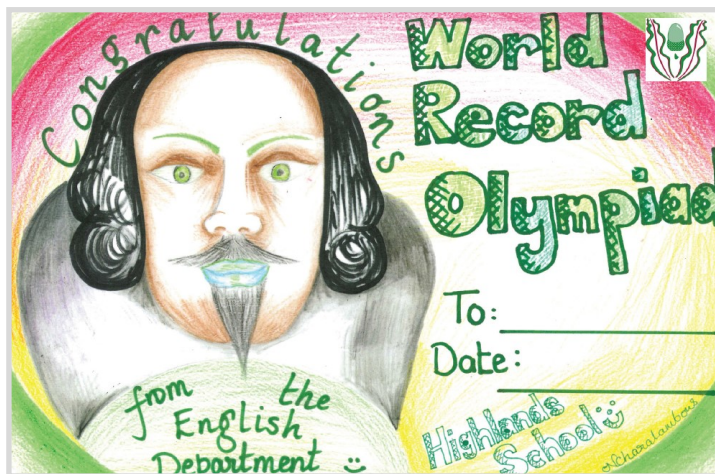 Congratulations
World
Record
Olympiad
To:
Date:
from the
English
Department
Highlands
School